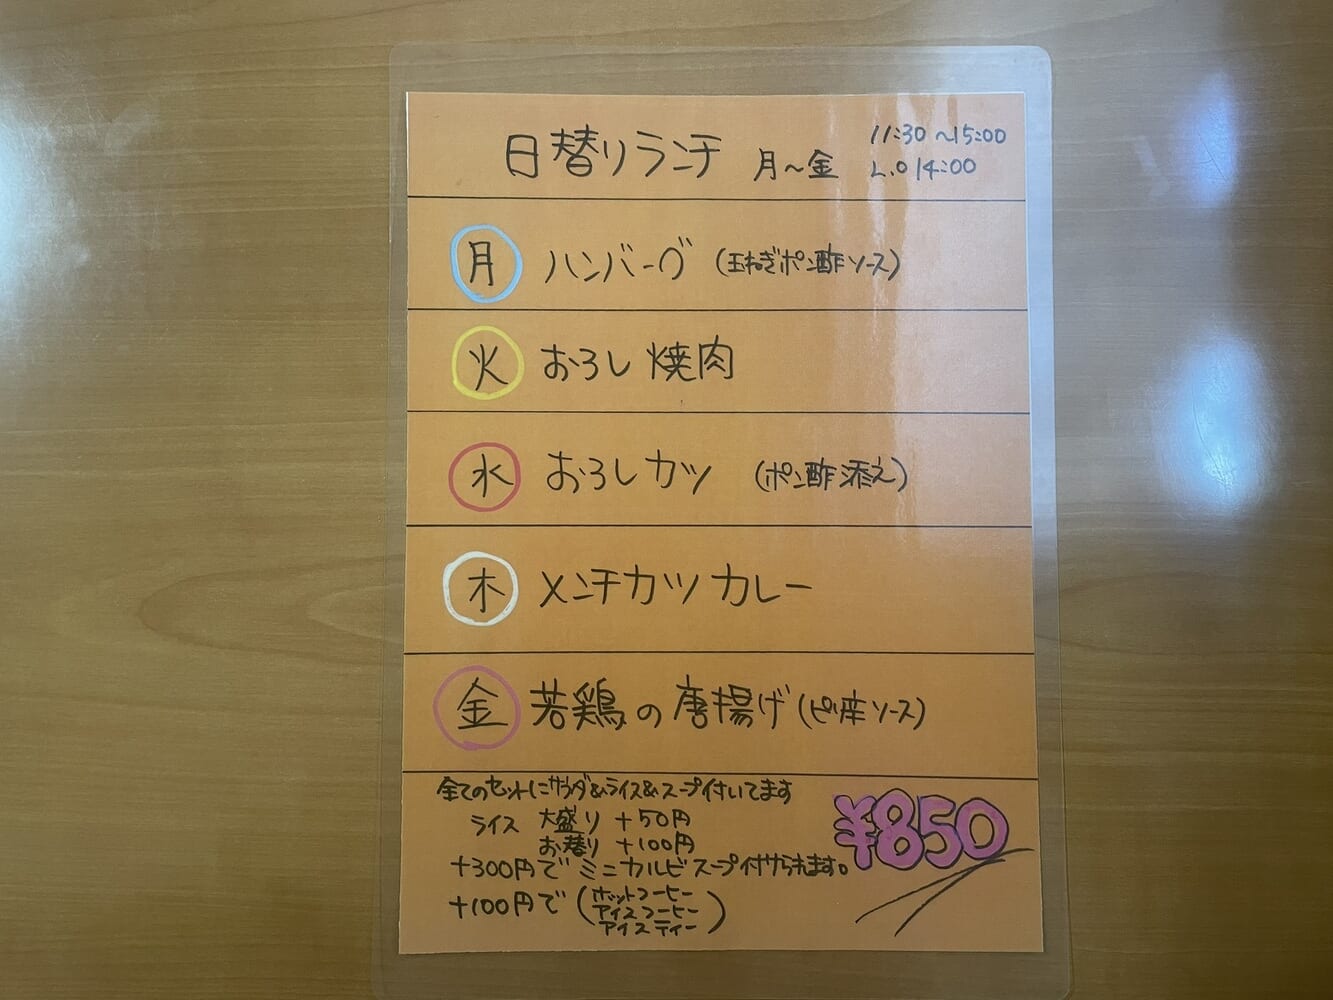 日替りランチ 月〜金 11:30〜15:00
L.O 14:00
月 ハンバーグ (玉ねぎポン酢ソース)
火 おろし焼肉
水 おろしカツ (ポン酢添え)
木 メンチカツカレー
金 若鶏の唐揚げ (ピリ辛ソース)
全てのセットにサラダ&ライス&スープ付いてます
ライス 大盛り +50円
お替り +100円
¥850
+300円で ミニカルビスープ付けられます。
+100円で (ホットコーヒー
アイスコーヒー
アイスティー)